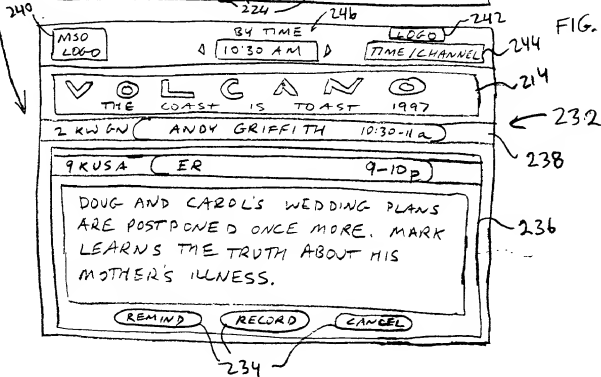 224
240
246
242
MSO
LOGO
BY TIME
LOGO
FIG.
10:30 AM
TIME/CHANNEL
244
VOLCANO
214
THE COAST IS TOAST 1997
232
2 KWGN ANDY GRIFFITH 10:30-11a
238
9 KUSA ER 9-10p
DOUG AND CAROL'S WEDDING PLANS
ARE POSTPONED ONCE MORE. MARK
236
LEARNS THE TRUTH ABOUT HIS
MOTHER'S ILLNESS.
REMIND RECORD CANCEL
234